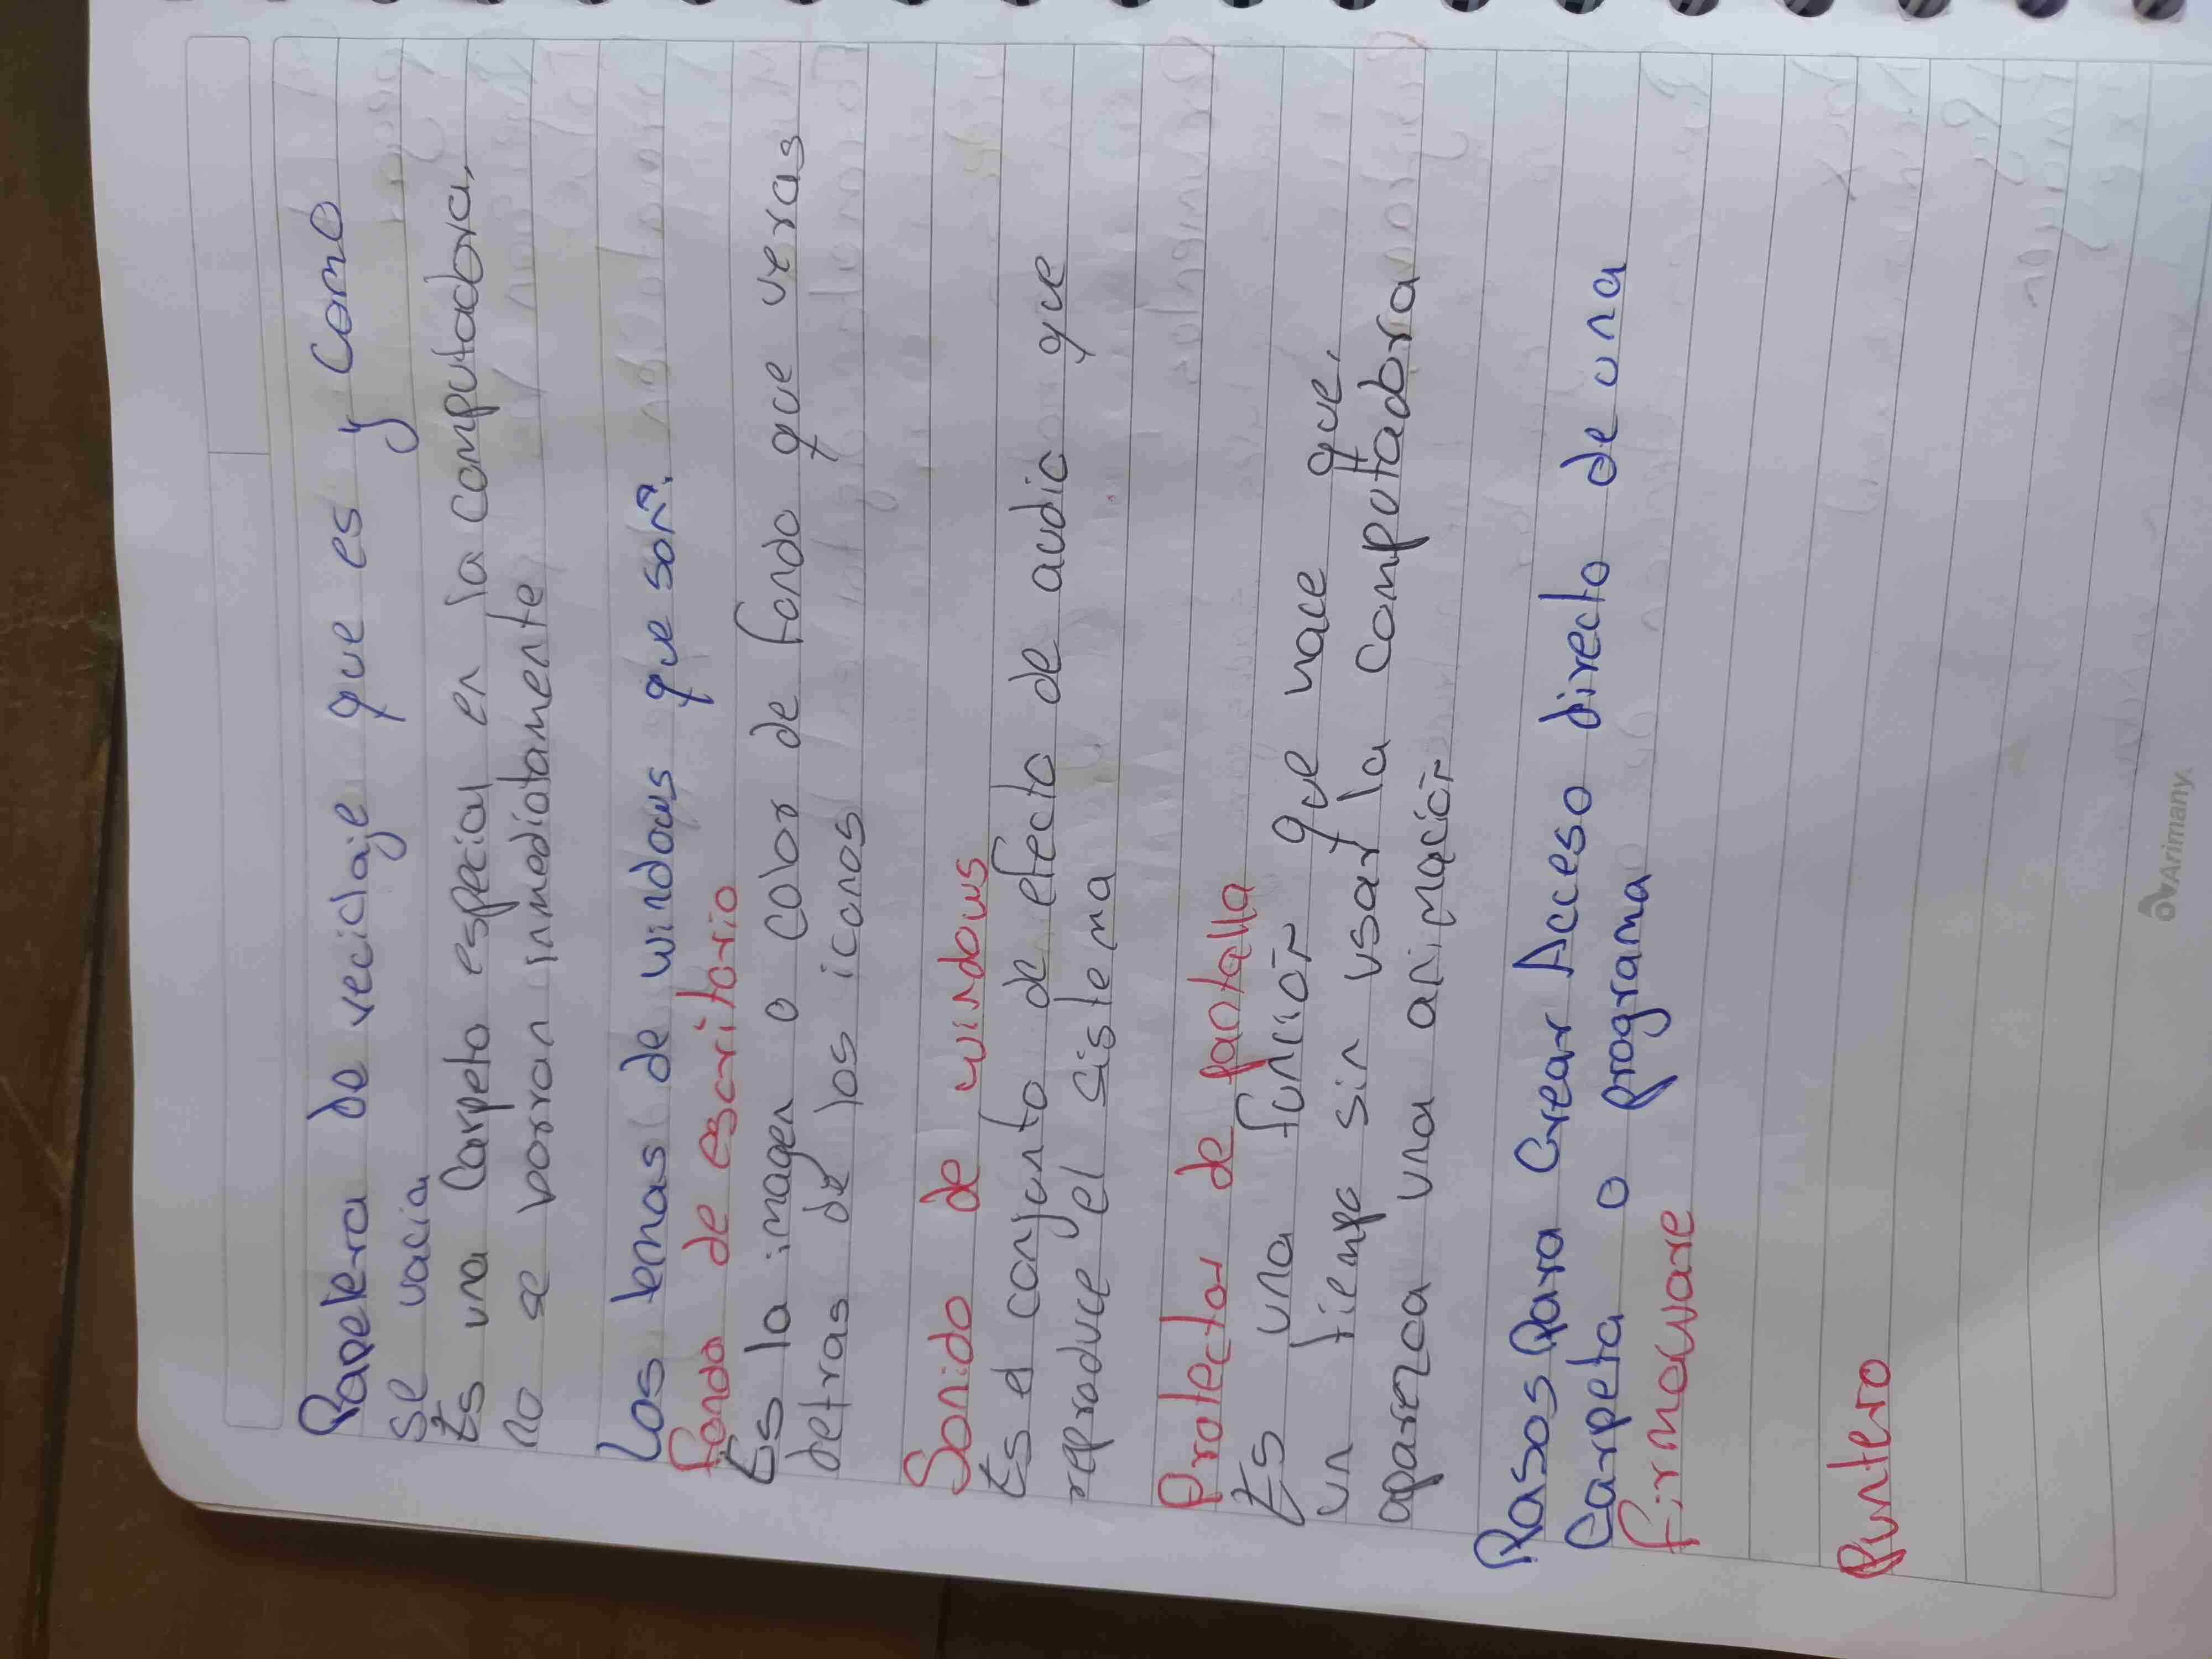 Papelera de reciclaje que es y como
se vacia
Es una Carpeta espacial en la computadora,
no se borran inmediatamente
Los temas de windows que son?
fondo de escritorio
Es la imagen o color de fondo que veras
detras de los iconos
Sonido de windows
Es el conjunto de efecto de audio que
reproduce el sistema
Protector de pantalla
Es una función que hace que,
un tiempo sin usar la computadora
aparezca una animación
Pasos Para Crear Acceso directo de una
Carpeta o programa
firmewuare
Puntero
Arimany